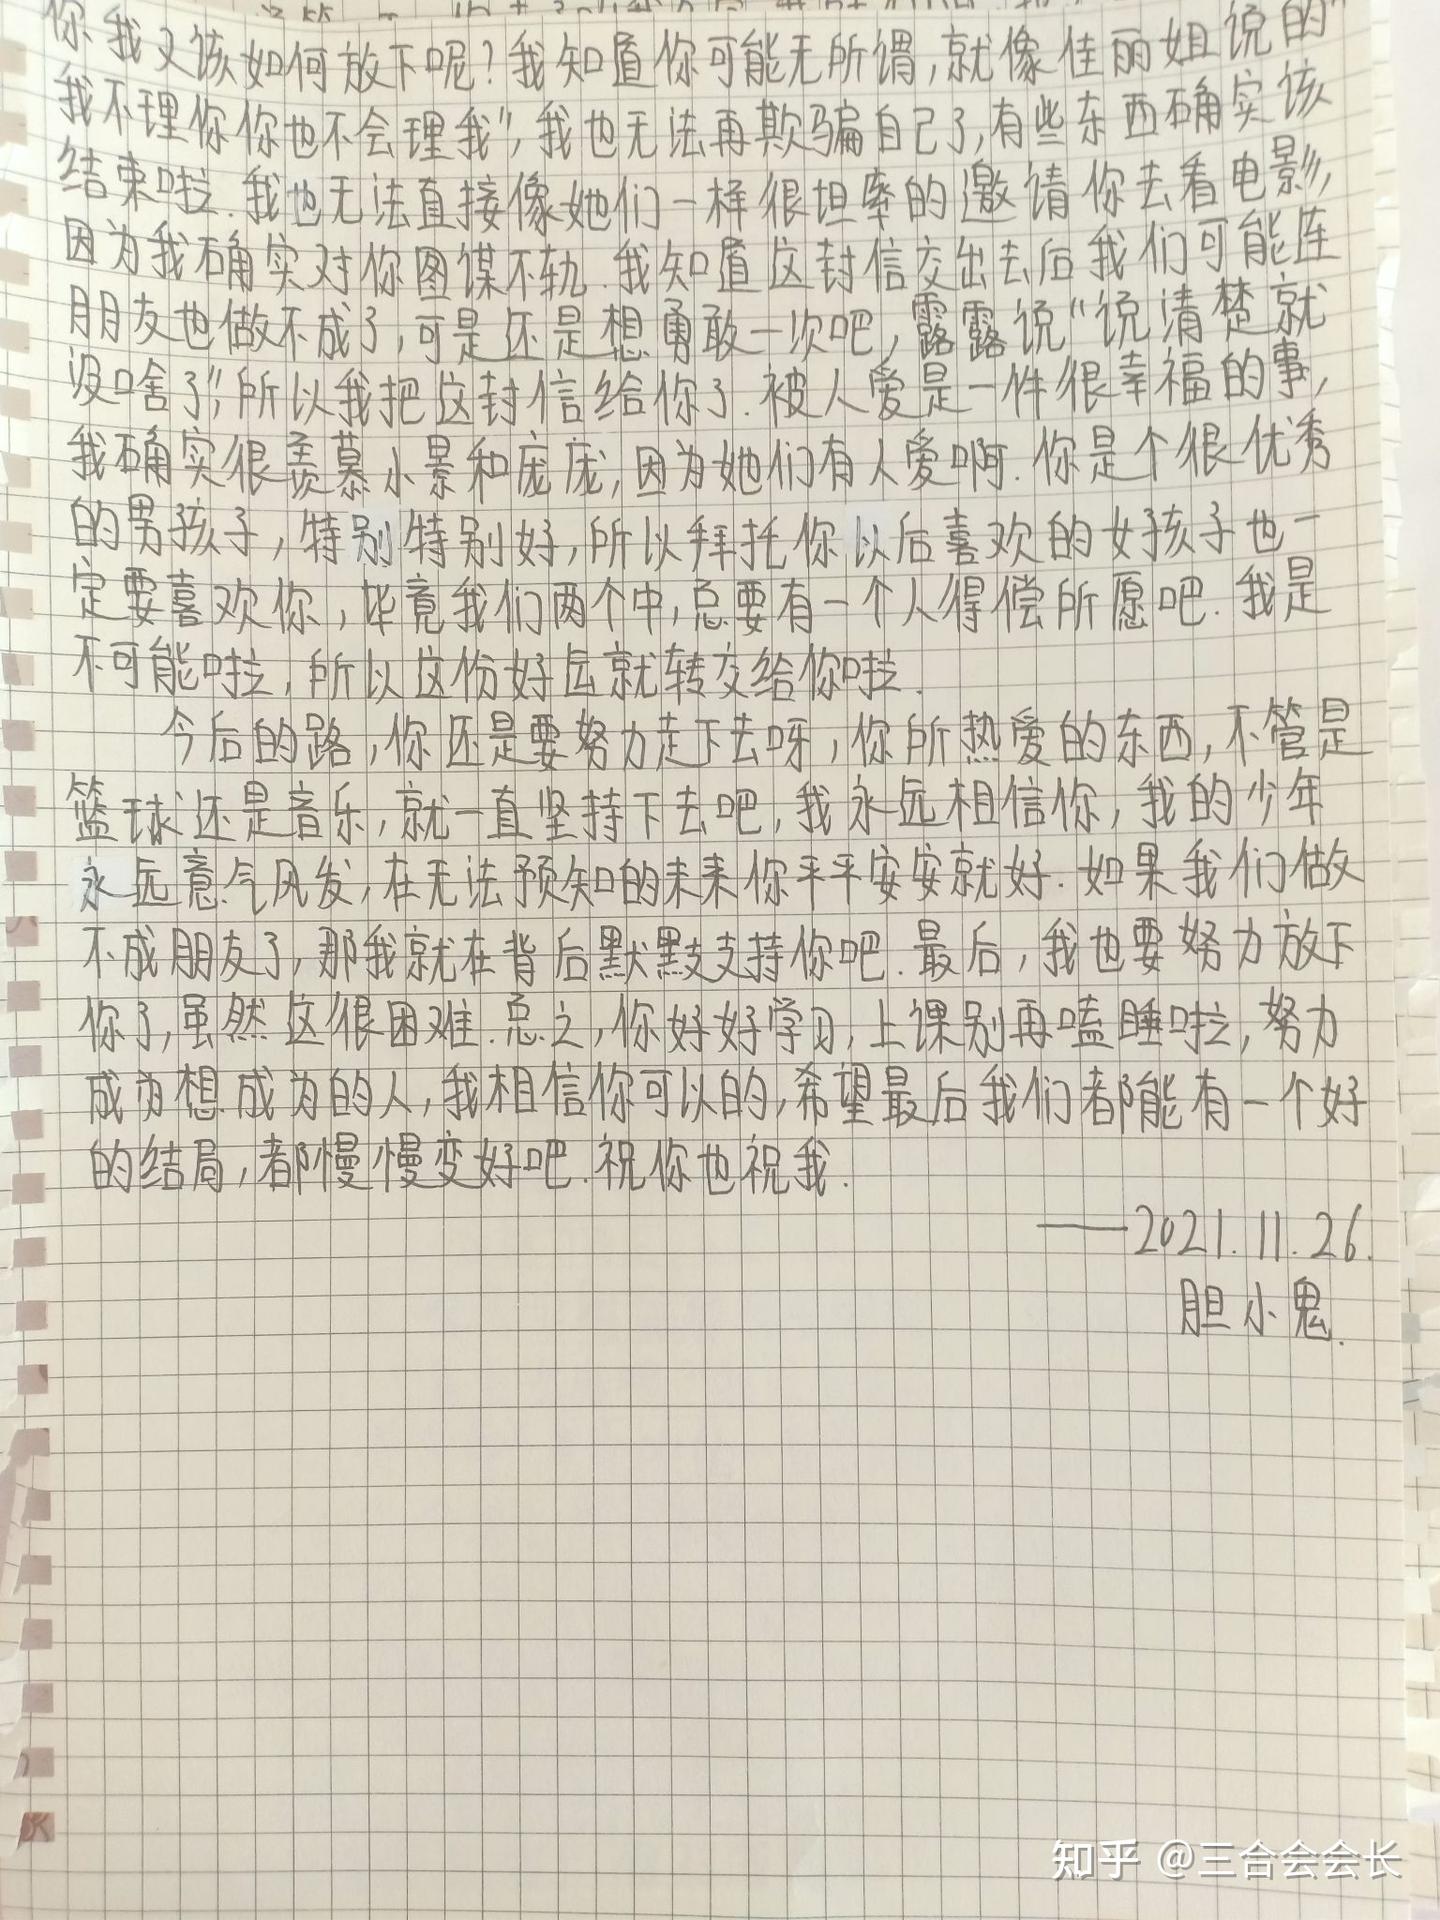 你我又该如何放下呢?我知道你可能无所谓,就像佳丽姐说的"
我不理你你也不会理我",我也无法再欺骗自己了,有些东西确实该
结束啦.我也无法直接像她们一样很坦率的邀请你去看电影,
因为我确实对你图谋不轨.我知道这封信交出去后我们可能连
朋友也做不成了,可是还是想勇敢一次吧,露露说"说清楚就
没啥了",所以我把这封信给你了.被人爱是一件很幸福的事,
我确实很羡慕小景和庞庞,因为她们有人爱啊.你是个很优秀
的男孩子,特别特别好,所以拜托你以后喜欢的女孩子也一
定要喜欢你,毕竟我们两个中,总要有一个人得偿所愿吧.我是
不可能啦,所以这份好运就转交给你啦.
今后的路,你还是要努力走下去呀,你所热爱的东西,不管是
篮球还是音乐,就一直坚持下去吧,我永远相信你,我的少年
永远意气风发,在无法预知的未来你平平安安就好.如果我们做
不成朋友了,那我就在背后默默支持你吧.最后,我也要努力放下
你了,虽然这很困难.总之,你好好学习,上课别再嗑睡啦,努力
成为想成为的人,我相信你可以的,希望最后我们都能有一个好
的结局,都慢慢变好吧.祝你也祝我.
——2021.11.26.
胆小鬼.
知乎 @三合会会长